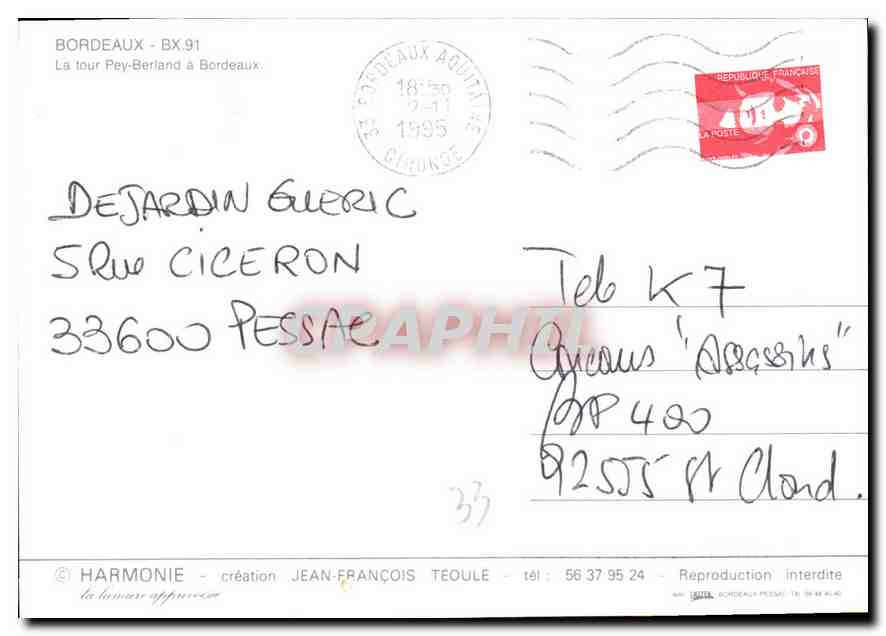 BORDEAUX - BX.91
La tour Pey-Berland à Bordeaux.
33 BORDEAUX AQUITAINE
18H30
2-11
1995
GIRONDE
REPUBLIQUE FRANÇAISE
LA POSTE
DEJARDIN GUERIC
5 Rue CICERON
33600 PESSAC
DELCAMPHIL
Tele K7
Concours "Assassins"
BP 400
92555 St Cloud.
33
© HARMONIE - création JEAN-FRANÇOIS TEOULE - tél : 56 37 95 24 - Reproduction interdite
la lumière apprivoisée
BORDEAUX-PESSAC Tél.